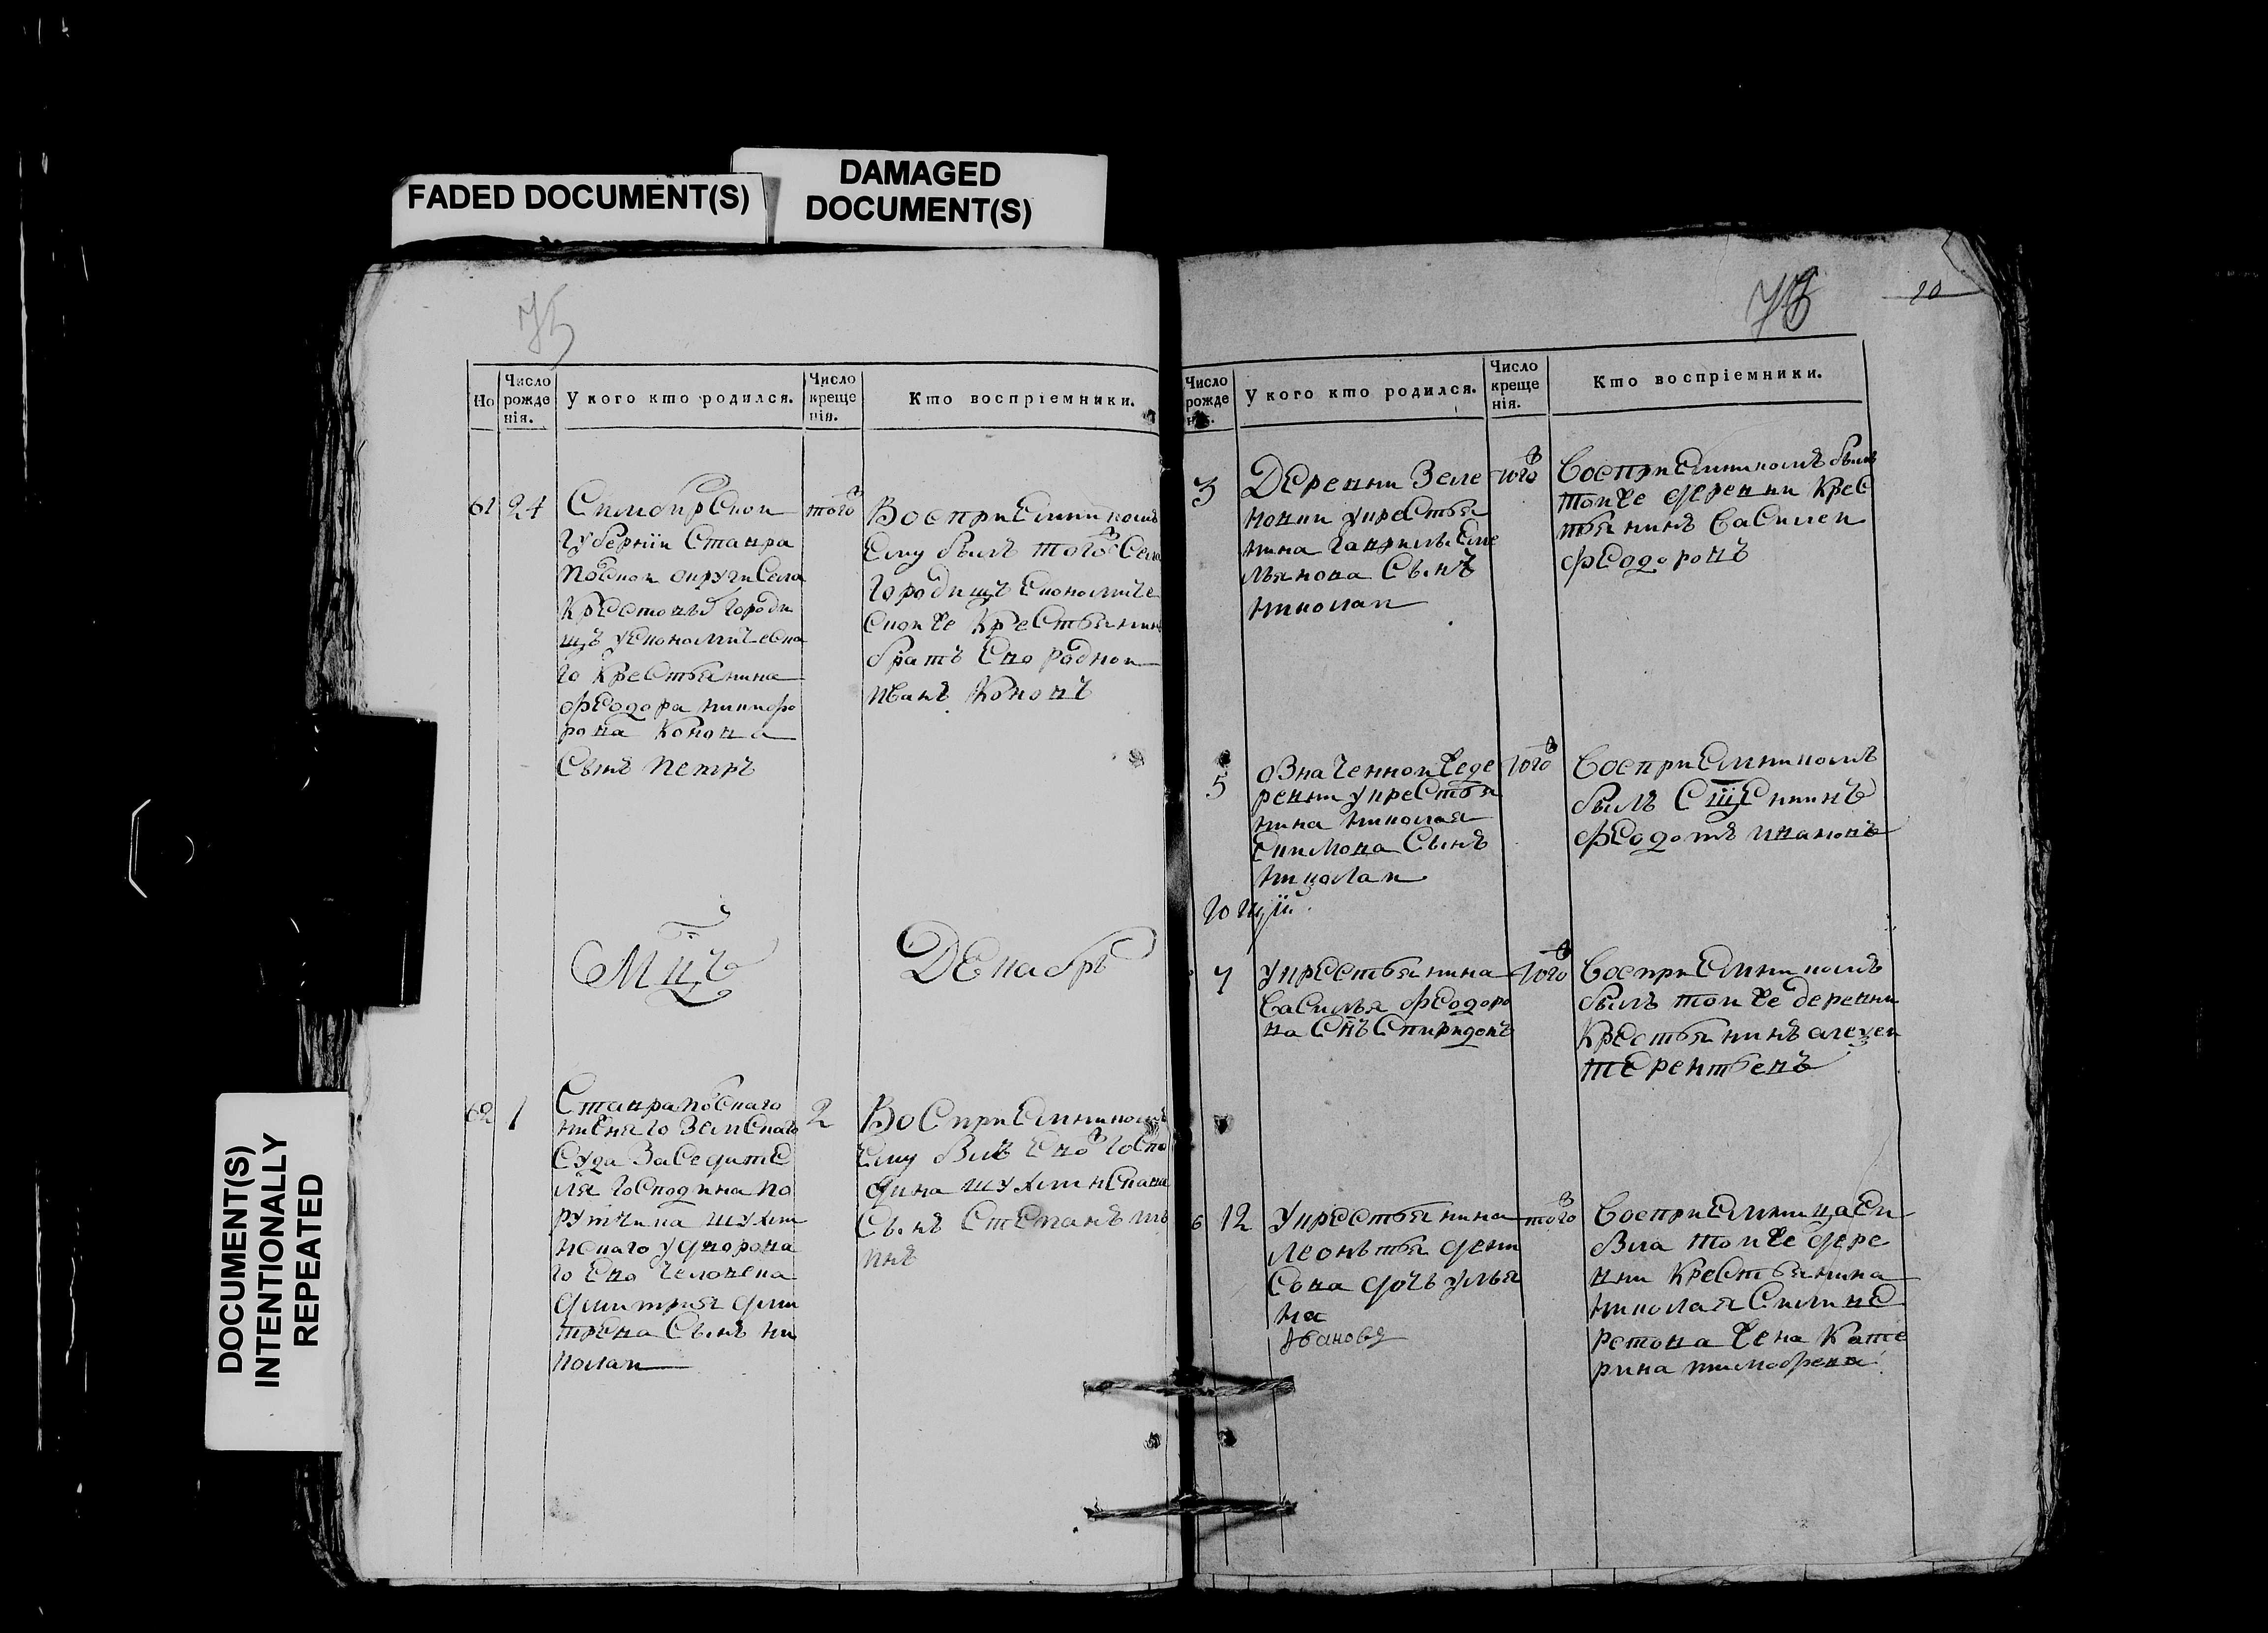 FADED DOCUMENT(S)
DAMAGED
DOCUMENT(S)
DOCUMENT(S)
INTENTIONALLY
REPEATED
75
Но
Число
рожде
нія.
У кого кто родился.
Число
креще
нія.
Кто воспріемники.
61
24
Симбирской
губернiи Ставра
польской округи села
Крестовыхъ городи
щъ у економическа
го крестьянина
Феодора никифо
рова Конова
сынъ петръ
того
Воспрiемникомъ
ему былъ того села
городищъ економиче
ской же крестьянинъ
братъ ево родной
иванъ Коновъ
Мцъ
Декабрь
62
1
Ставрапольскаго
нижняго земскаго
суда заседате
ля господина по
рутчика
у дворова
го ево человека
димитрия дми
трева сынъ ни
колаи
2
Воспрiемникомъ
ему былъ ево госпо
дина
сынъ стефанъ
20
Число
рожде
У кого кто родился.
Число
креще
нія.
Кто воспріемники.
3
Деревни Зеле
новки у крестья
нина гаврилы еме
льянова сынъ
николаи
того
воспрiемникомъ былъ
тойже деревни крес
тьянинъ василеи
феодоровъ
5
означеннойже де
ревни у крестья
нина николая
сынъ
николаи
того
воспрiемникомъ
былъ сщенникъ
феодотъ ивановъ
7
у крестьянина
василья феодоро
ва снъ спиридонъ
того
воспрiемникомъ
былъ тойже деревни
крестьянинъ алексеи
терентьевъ
6
12
у крестьянина
леонтья дени
сова дочь улья
на
того
воспрiемница
была тойже дере
вни крестьянина
николая
жена кате
рина тимофеева